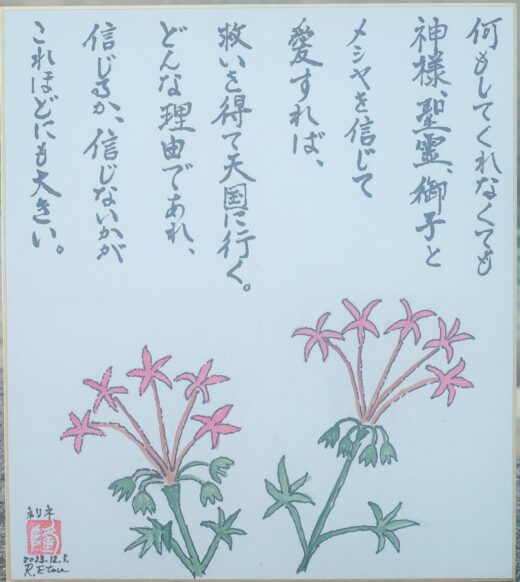 何もしてくれなくても
神様、聖霊、御子と
メシヤを信じて
愛すれば、
救いを得て天国に行く。
どんな理由であれ、
信じるか、信じないかが
これほどにも大きい。
ネリネ
2023.12.5.
R.Etou